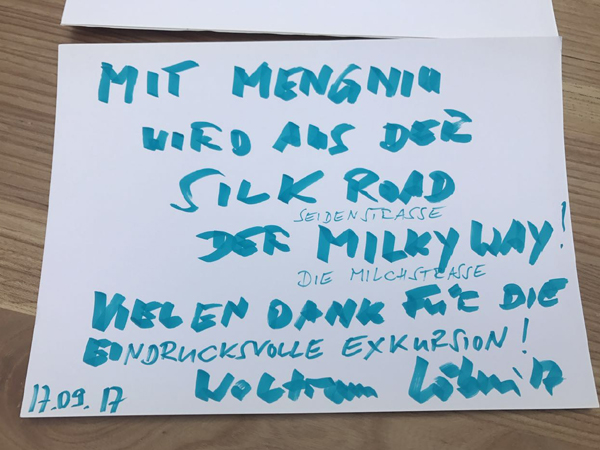 MIT MENGNIU
WIRD AUS DER
SILK ROAD
SEIDENSTRASSE
DER MILKY WAY!
DIE MILCHSTRASSE
VIELEN DANK FÜR DIE
EINDRUCKSVOLLE EXKURSION!
Wolfram
17.09.17